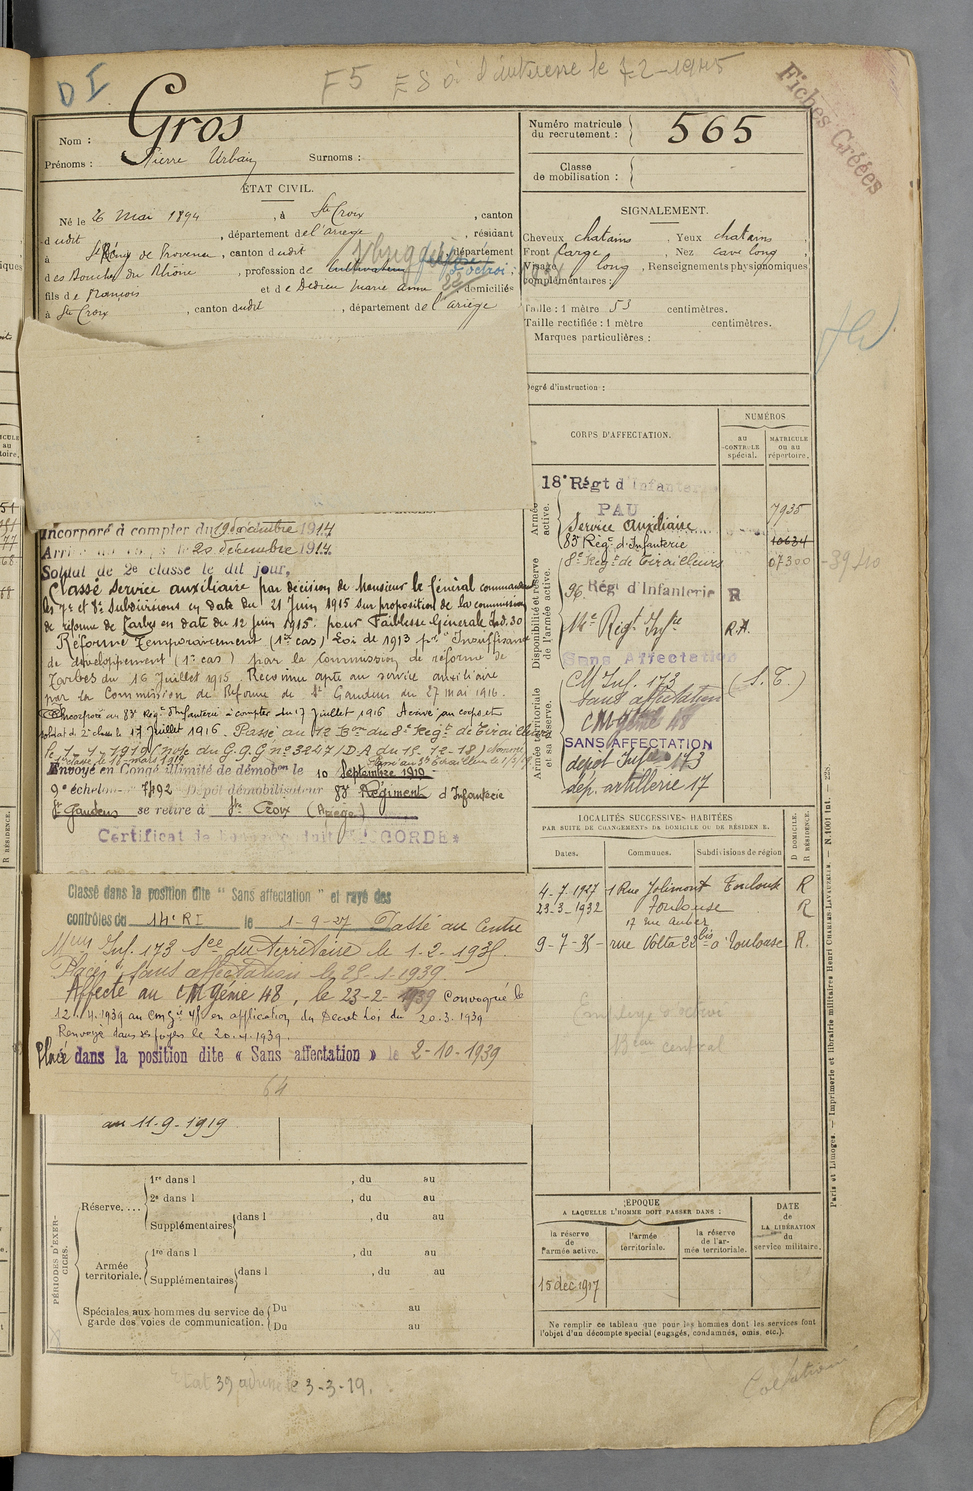 D I
F5 ES
Fiches Créées
Nom : Gros
Prénoms : Pierre Urbain Surnoms :
ÉTAT CIVIL.
Né le 26 Mai 1894, à Ste Croix, canton
dudit, département de l'ariège, résidant
à St Rémy de Provence, canton dudit, département
des Bouches du Rhône, profession de Cultivateur
fils de François et de Dedieu Marie Anne, domiciliés
à Ste Croix, canton dudit, département de l'ariège
Numéro matricule du recrutement : 565
Classe de mobilisation :
SIGNALEMENT.
Cheveux chatains, Yeux chatains
Front large, Nez cave long
Visage long, Renseignements physionomiques
complémentaires :
Taille : 1 mètre 53 centimètres.
Taille rectifiée : 1 mètre centimètres.
Marques particulières :
Degré d'instruction :
CORPS D'AFFECTATION.
NUMÉROS
au CONTROLE spécial.
MATRICULE ou au répertoire.
Armée active.
18e Régt d'Infanterie
PAU 7935
Service auxiliaire
83e Régt d'Infanterie 10634
8e Régt de Tirailleurs 07300 - 39410
Disponibilité et réserve de l'armée active.
96 Régt d'Infanterie R
14e Régt Infie R.A.
Sans Affectation
Armée territoriale et sa réserve.
CM Inf. 173 (S.T.)
Sans affectation
SANS AFFECTATION
dépot Infie 173
dép. artillerie 17
Incorporé à compter du 19 décembre 1914
20 décembre 1914
Soldat de 2e classe le dit jour,
Classé Service auxiliaire par décision de Monsieur le Général commandant
les 7e et 8e Subdivisions en date du 21 Juin 1915 sur proposition de la commission
de réforme de Tarbes en date du 12 juin 1915 pour Faiblesse Générale Ind. 30
Réformé Temporairement (1er cas) Loi de 1913 pr Insuffisance
de développement (1er cas) par la Commission de réforme de
Tarbes du 16 Juillet 1915. Reconnu apte au service auxiliaire
par la Commission de Réforme de St Gaudens du 27 mai 1916.
Incorporé au 83e Régt d'Infanterie à compter du 17 Juillet 1916 Arrivé au corps et
soldat de 2e classe le 17 Juillet 1916 - Passé au 12e Bon du 8e Régt de Tirailleurs
le 1-1-1919 (note du G.Q.G no 3247/DA du 15-12-18)
Envoyé en Congé illimité de démobon le 10 Septembre 1919
9e échelon no 7492 Dépot démobilisateur 83e Régiment d'Infanterie
St Gaudens se retire à Ste Croix (Ariège)
Certificat de bonne conduite "ACCORDÉ"
Classé dans la position dite "Sans affectation" et rayé des
contrôles du 14e RI le 1-9-27 Passé au Centre
Mon Inf. 173 Son du Territoire le 1-2-1935.
Placé "Sans affectation" le 25-1-1939.
Affecté au CM génie 48, le 23-2-1939 Convoqué le
12.4.1939 au cm gie 48 en application du Décret Loi du 20.3.1939
Renvoyé dans ses foyers le 20.4.1939.
Placé dans la position dite « Sans affectation » le 2-10-1939
64
au 11-9-1919
LOCALITÉS SUCCESSIVES HABITÉES
PAR SUITE DE CHANGEMENTS DE DOMICILE OU DE RÉSIDENCE.
Dates. Communes. Subdivisions de région D DOMICILE. R RÉSIDENCE.
4-7-1927 1 Rue Jolimont Toulouse R
23-3-1932 Toulouse R
17 rue Auber
9-7-35 - rue Volta 22 bis à Toulouse R.
Employé d'octroi
Bau central
PÉRIODES D'EXERCICES.
Réserve....
1re dans l , du au
2e dans l , du au
Supplémentaires dans l , du au
Armée territoriale.
1re dans l , du au
Supplémentaires dans l , du au
Spéciales aux hommes du service de garde des voies de communication.
Du au
Du au
ÉPOQUE
A LAQUELLE L'HOMME DOIT PASSER DANS :
la réserve de l'armée active.
l'armée territoriale.
la réserve de l'armée territoriale.
DATE de LA LIBÉRATION du service militaire.
15 dec 1917
Ne remplir ce tableau que pour les hommes dont les services font
l'objet d'un décompte spécial (engagés, condamnés, omis, etc.).
Paris et Limoges. — Imprimerie et librairie militaires Henri CHARLES-LAVAUZELLE. — N. 1001 Int. — 228.
3-3-19.